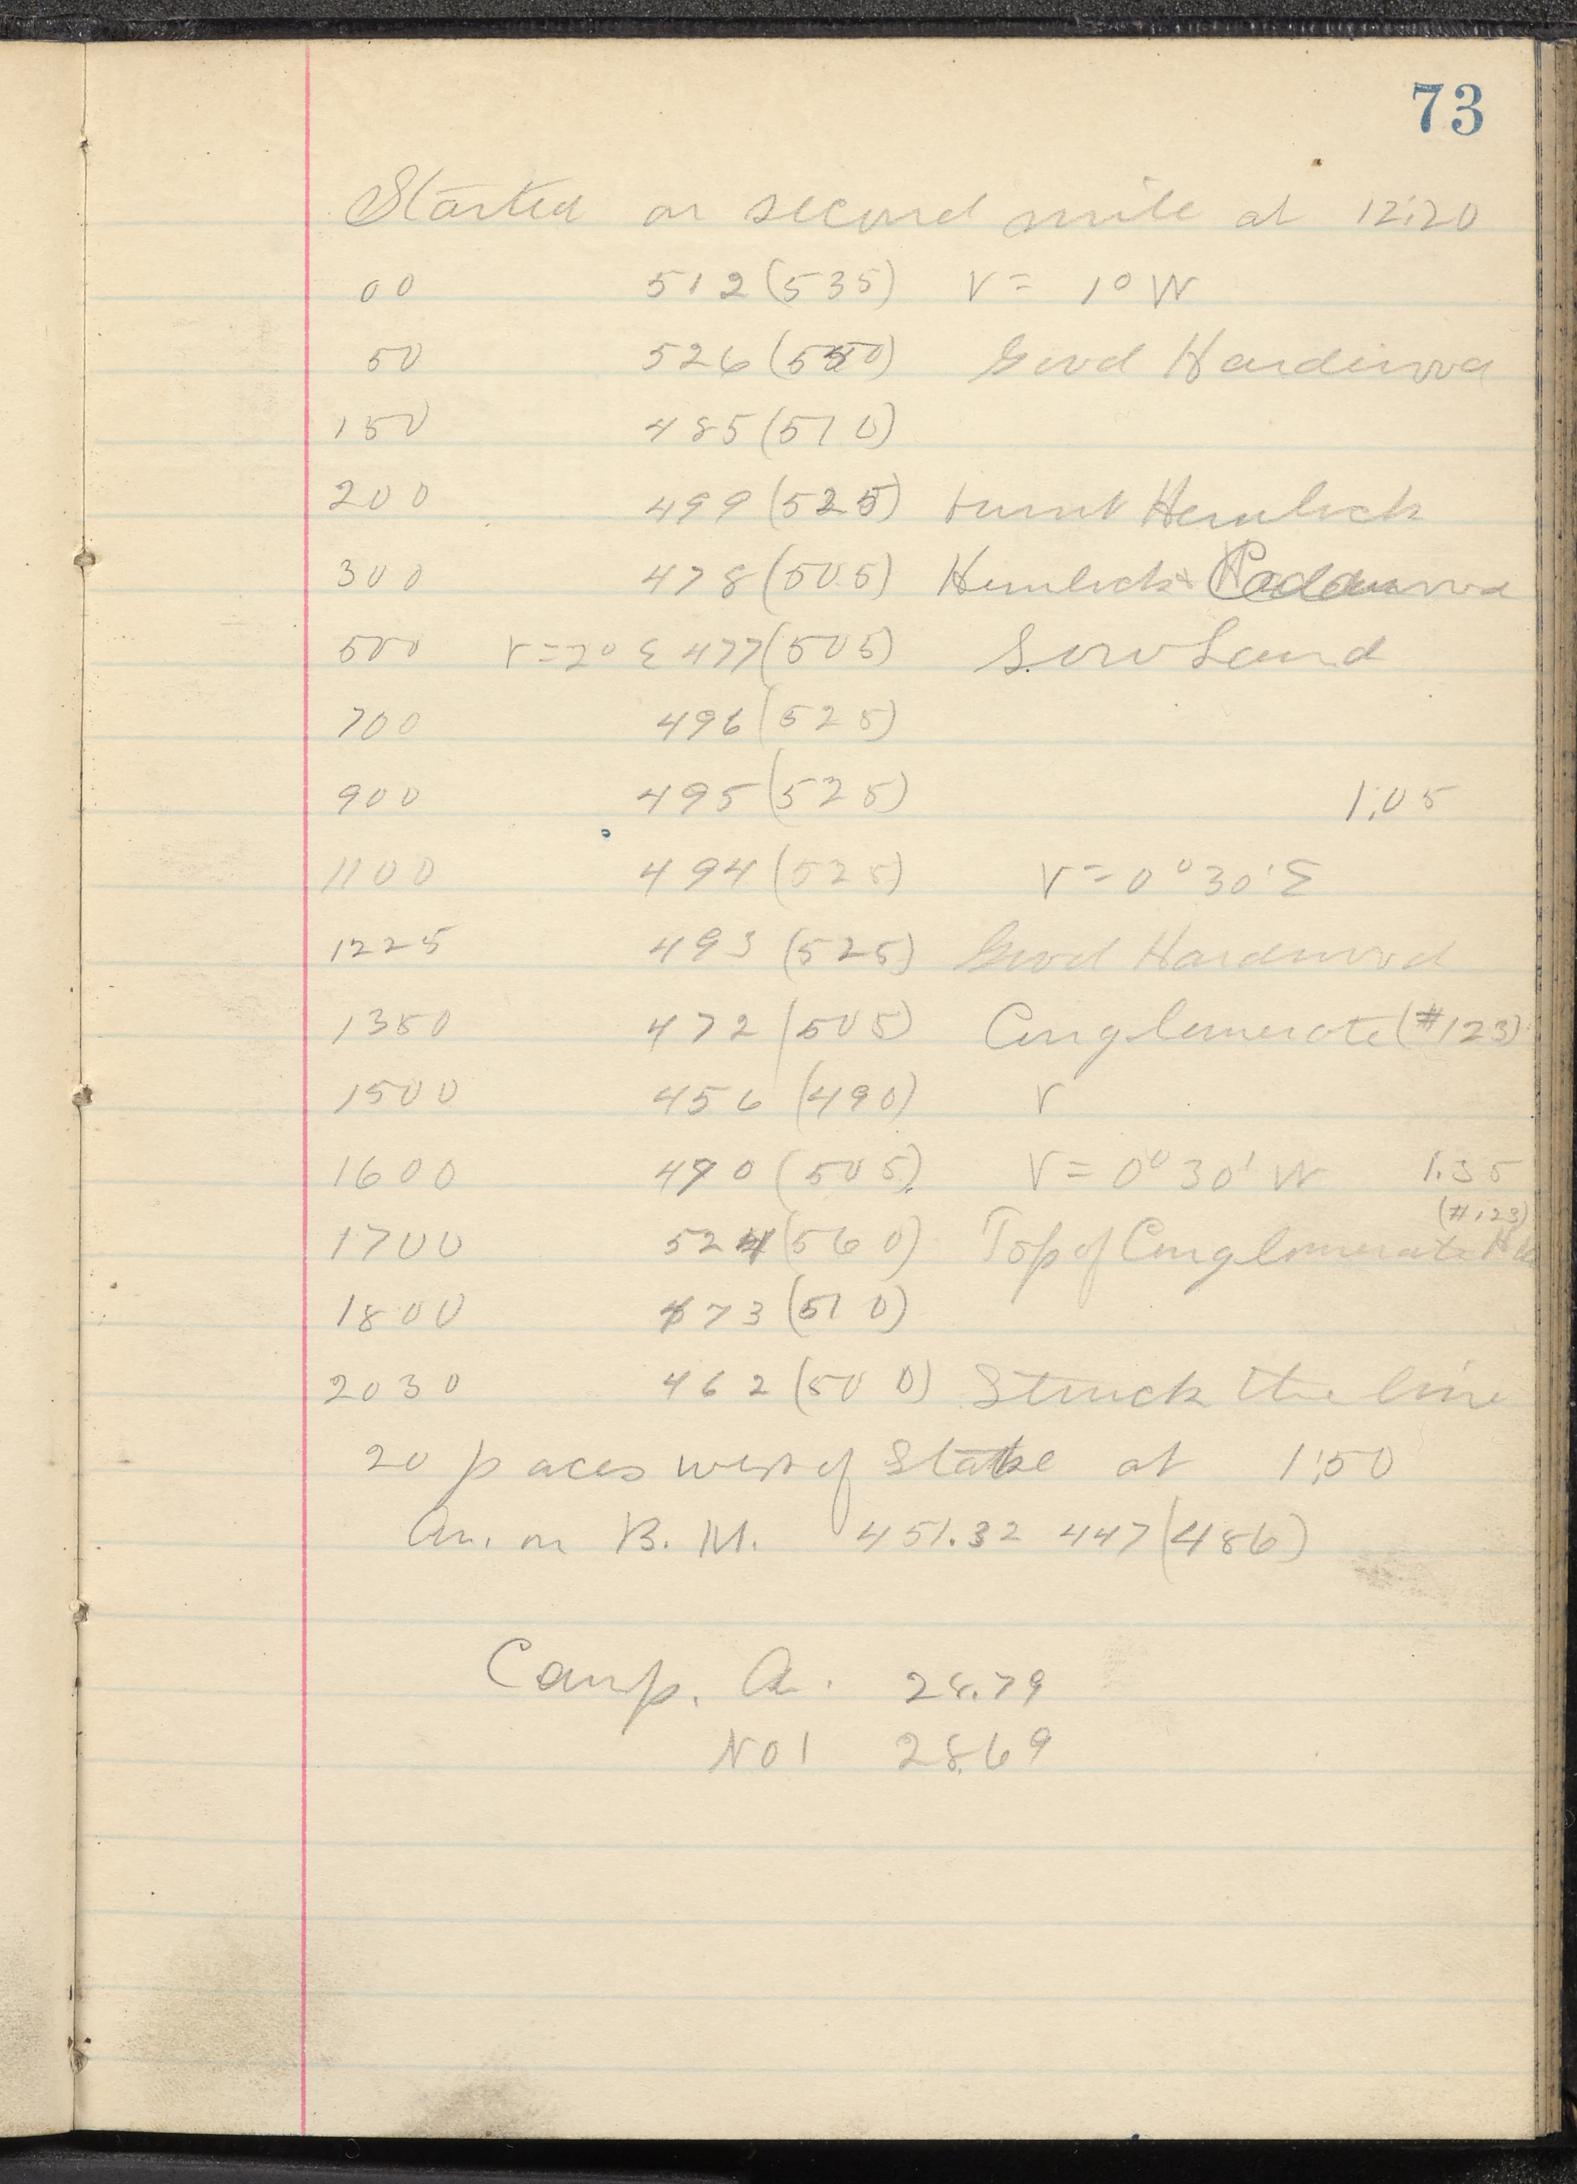 73
Started on second mile at 12:20
00 512 (535) V = 1° W
50 526 (550) Good Hardwood
150 485 (510)
200 499 (525) burnt Hemlock
300 478 (505) Hemlock &
500 V = 2° E 477 (505) Low Land
700 496 (525)
900 495 (525) 1:05
1100 494 (525) V = 0° 30' E
1225 493 (525) Good Hardwood
1350 472 (505) Conglomerate (#123)
1500 456 (490) V
1600 470 (505) V = 0° 30' W 1.35
(#123)
1700 524 (560) Top of Conglomerate
1800 473 (510)
2030 462 (500) Struck the line
20 paces west of Stake at 1:50
An. on B. M. 451.32 447 (486)
Camp. A. 28.79
No 1 28.69